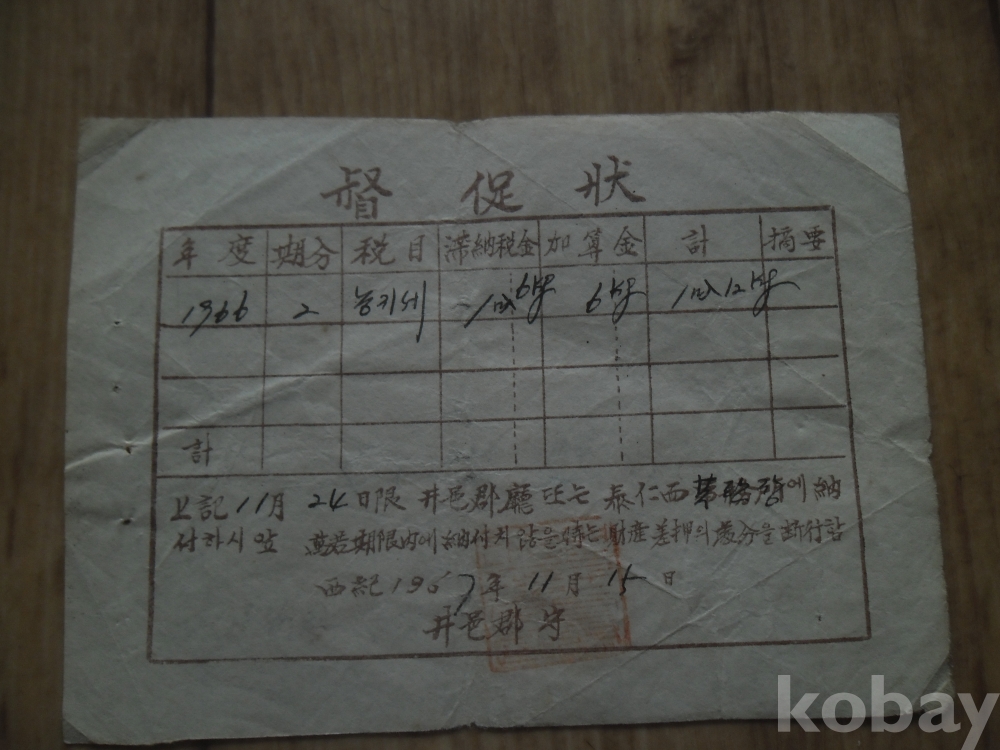 督促狀
年度 期分 税目 滯納税金 加算金 計 摘要
1966 2 농지세 6 6 12
計
上記 11月 24日限 井邑郡廳 또는 泰仁面 에 納
付하시앞 萬若期限内에納付치 않을時는 財産差押의處分을断行함
西紀 1967年 11月 15日
井邑郡守
kobay